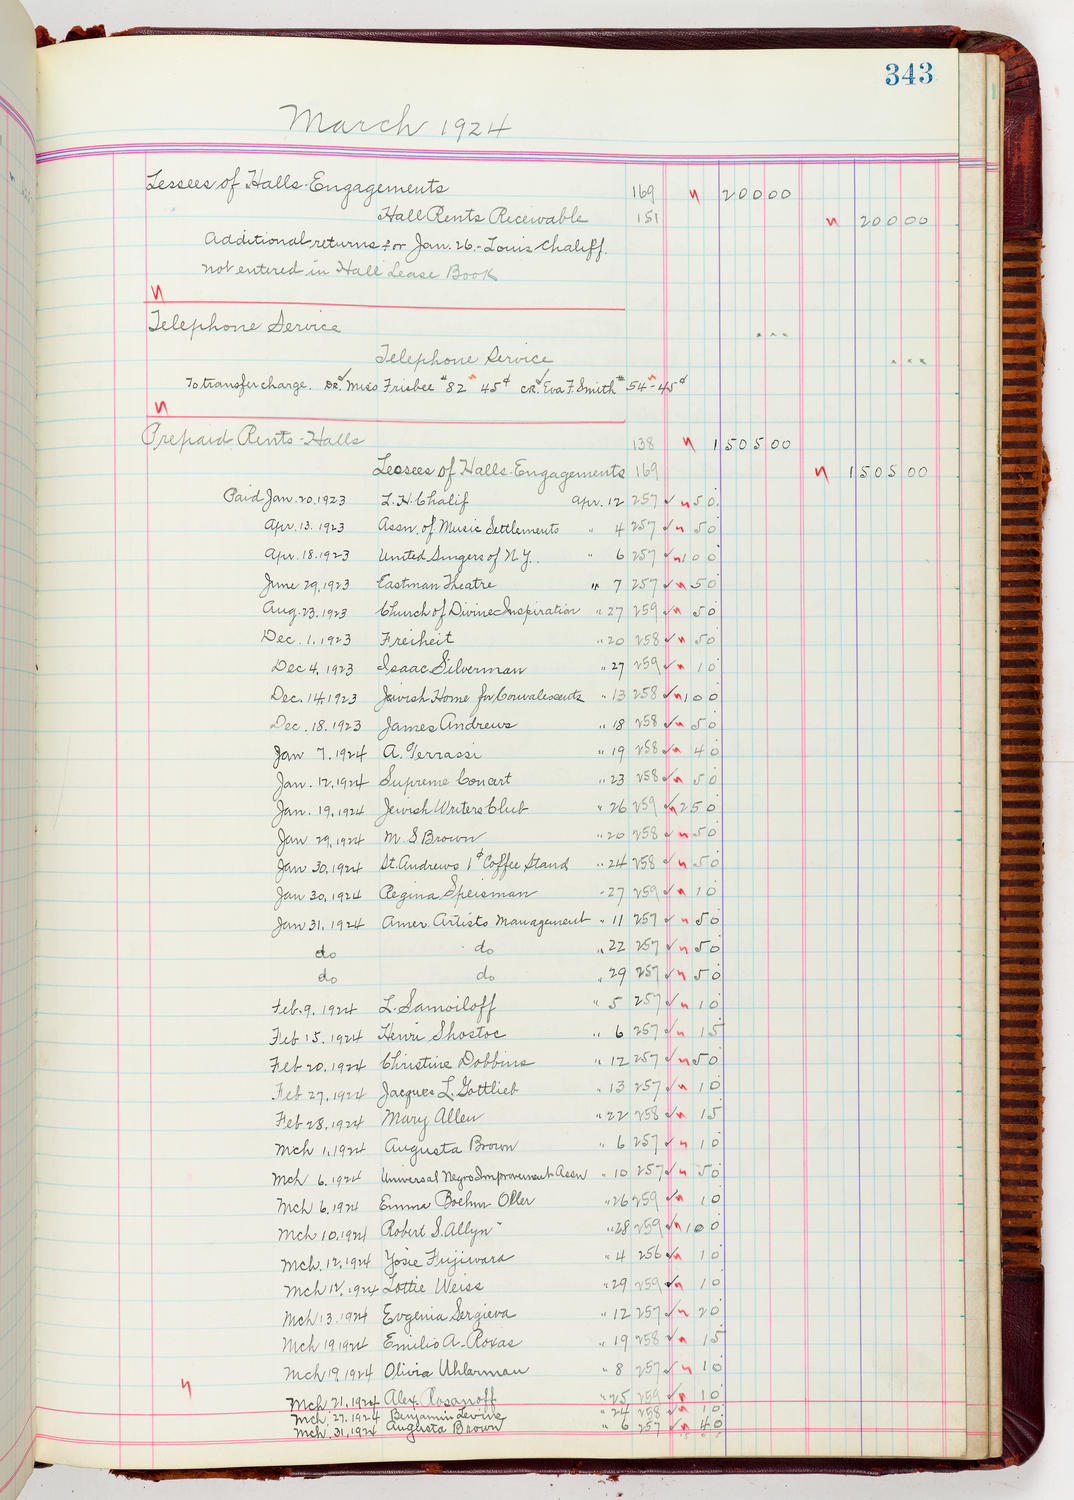 343
March 1924
Lessees of Halls-Engagements 169 20000
Hall Rents Receivable 151 20000
Additional returns for Jan. 26,- Louis Chaliff.
not entered in Hall Lease Book
Telephone Service
Telephone Service
To transfer charge. DR. Miss Frisbee #82 45¢ CR. Eva F. Smith #54-45¢
Prepaid Rents-Halls 138 150500
Lessees of Halls-Engagements 169 150500
Paid Jan. 20, 1923 L. H. Chalif Apr. 12 257 50
Apr. 13. 1923 Assn. of Music Settlements " 4 257 50
Apr. 18. 1923 United Singers of N.Y. " 6 257 100
June 29, 1923 Eastman Theatre " 7 257 50
Aug. 23. 1923 Church of Divine Inspiration " 27 259 50
Dec. 1. 1923 Freiheit " 20 258 50
Dec 4, 1923 Isaac Silverman " 27 259 10
Dec. 14, 1923 Jewish Home for Convalescents " 13 258 100
Dec. 18. 1923 James Andrews " 18 258 50
Jan 7. 1924 A. Terrassi " 19 258 40
Jan. 12, 1924 Supreme Concert " 23 258 50
Jan. 19, 1924 Jewish Writers Club " 26 259 250
Jan 29, 1924 M. S Brown " 20 258 50
Jan 30, 1924 St. Andrews 1¢ Coffee Stand " 24 258 50
Jan 30, 1924 Regina Speisman " 27 259 10
Jan 31, 1924 Amer. Artists Management " 11 257 50
do do " 22 257 50
do do " 29 257 50
Feb. 9, 1924 L. Samoiloff " 5 257 10
Feb 15. 1924 Henri Shostac " 6 257 15
Feb 20, 1924 Christine Dobbins " 12 257 50
Feb 27, 1924 Jacques L. Gottlieb " 13 257 10
Feb 28, 1924 Mary Allen " 22 258 15
Mch 1, 1924 Augusta Brown " 6 257 10
Mch 6, 1924 Universal Negro Improvement Assn " 10 257 50
Mch 6, 1924 Emma Boehm Oller " 26 259 10
Mch 10, 1924 Robert S. Allyn " 28 259 100
Mch. 12, 1924 Yosie Fujiwara " 4 256 10
Mch 12, 1924 Lottie Weiss " 29 259 10
Mch 13. 1924 Evgenia Sergieva " 12 257 20
Mch 19 1924 Emilio A. Roxas " 19 258 15
Mch 19, 1924 Olivia Uhlarman " 8 257 10
Mch 21, 1924 Alex. Rosanoff " 25 259 10
Mch. 27, 1924 Benjamin Levine " 24 258 10
Mch. 31, 1924 Augusta Brown " 6 257 40